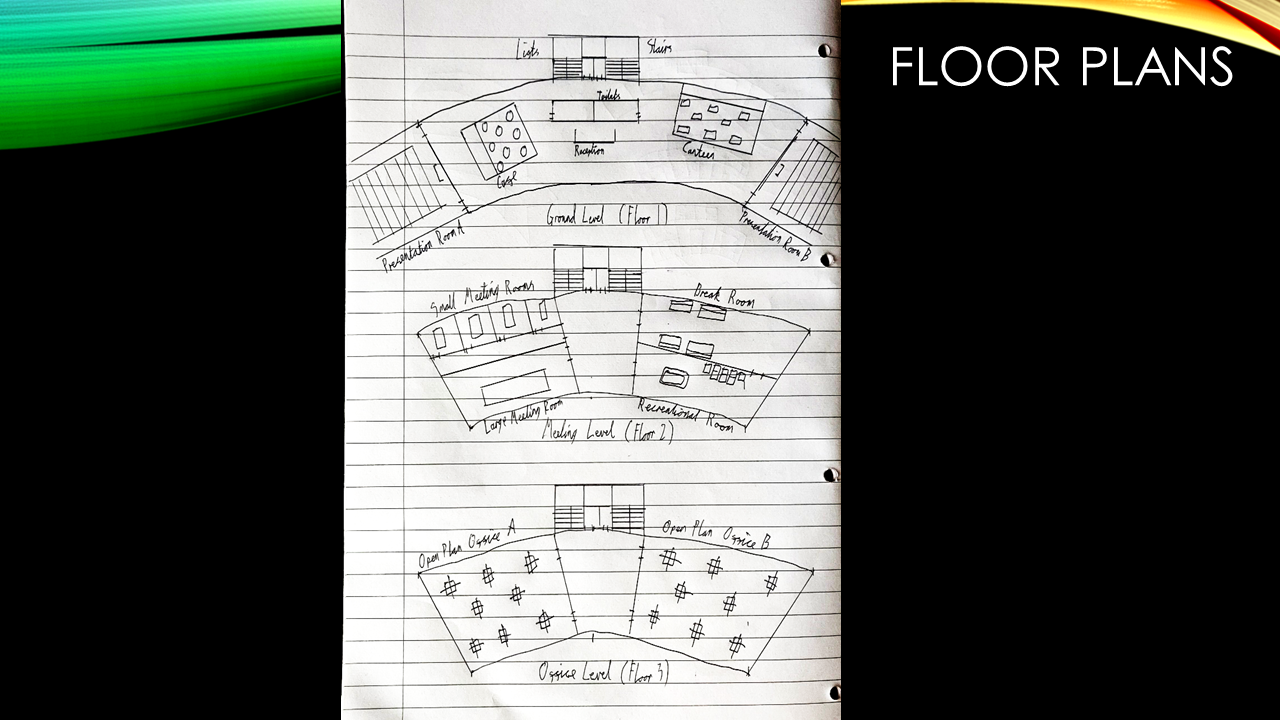 FLOOR PLANS
Lifts
Stairs
Toilets
Reception
Cafe
Canteen
Ground Level (Floor 1)
Presentation Room A
Presentation Room B
Small Meeting Rooms
Break Room
Large Meeting Room
Recreational Room
Meeting Level (Floor 2)
Open Plan Office A
Open Plan Office B
Office Level (Floor 3)